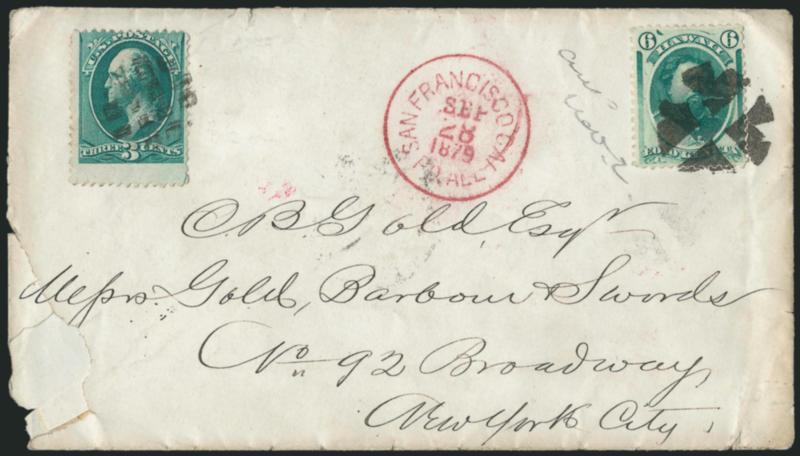 U.S. POSTAGE
THREE 3 CENTS
SAN FRANCISCO CAL
SEP
28
1879
PD. ALL
HAWAII
6 6
C B Gold, Esqr
Messrs. Gold, Barbour & Swords
No. 92 Broadway
New York City.